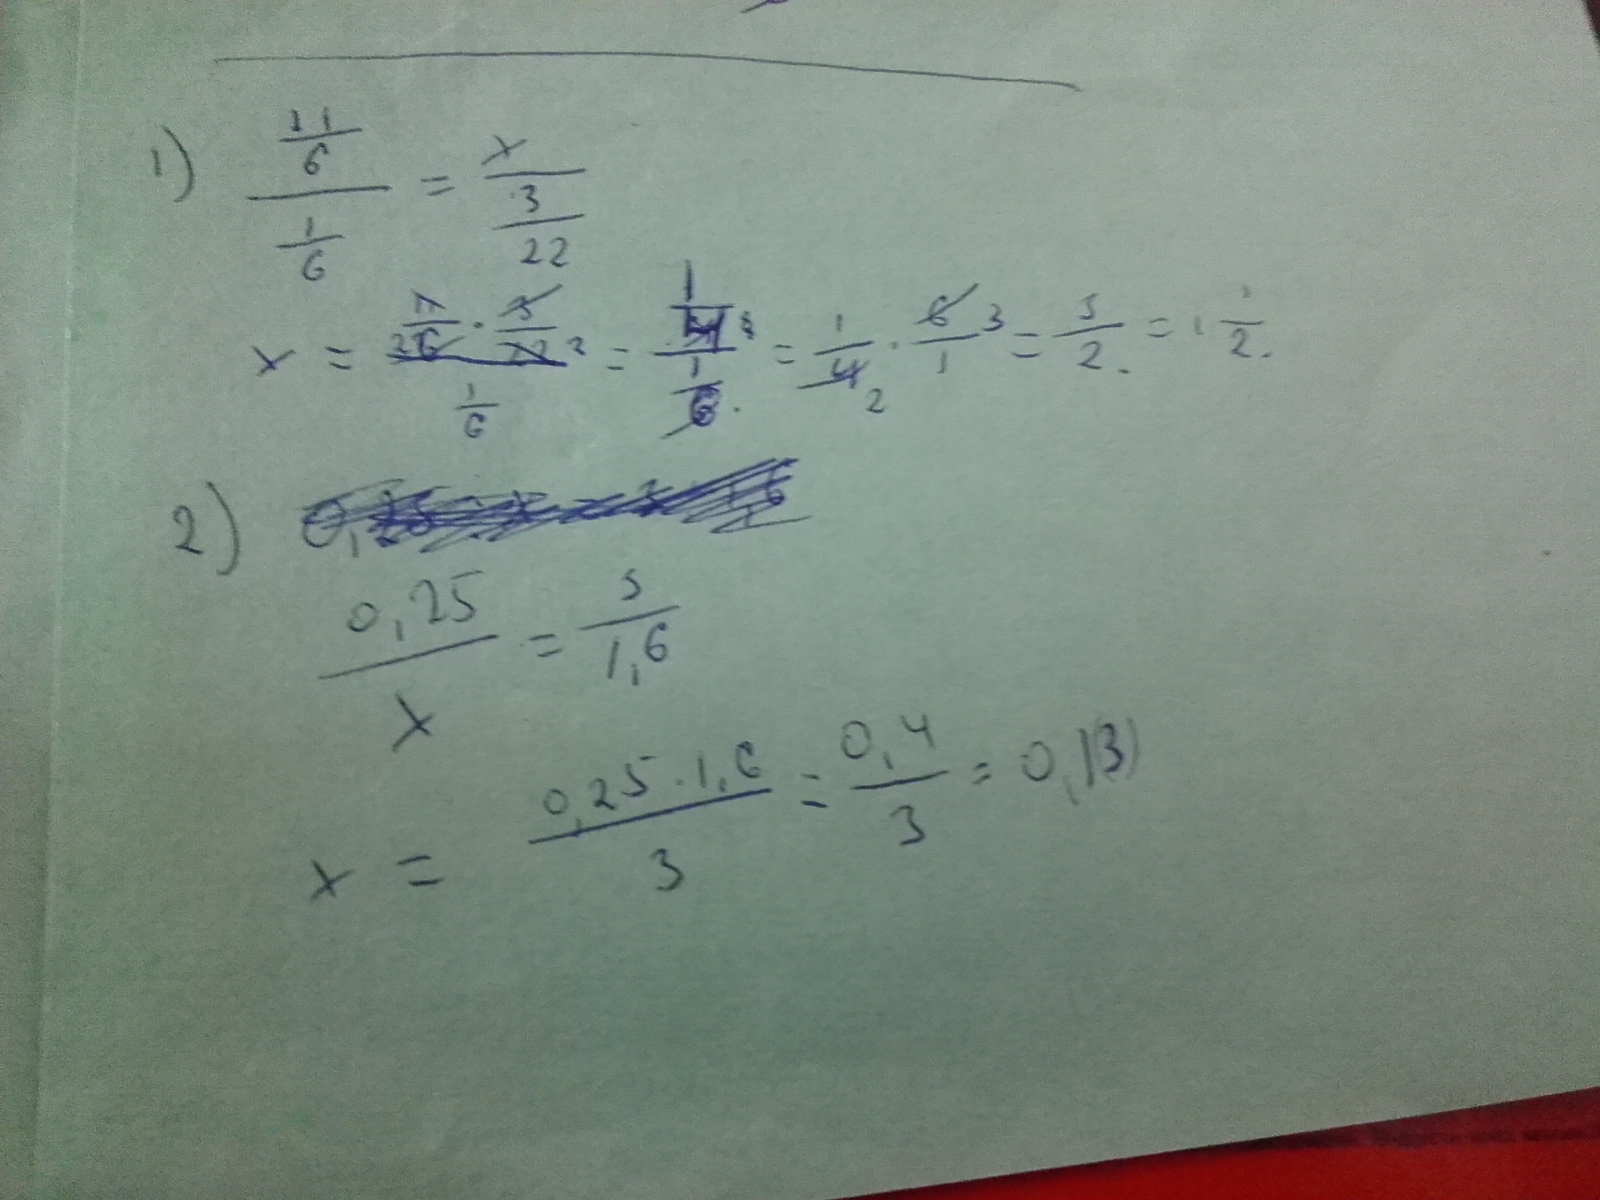 1) 11/6 / 1/6 = x / 3/22
x = 11/26 · 3/22 2 / 1/6 = 1/4 / 1/6 = 1/4 2 · 6/1 3 = 3/2 = 1 1/2.
2)
0,25/x = 3/1,6
x = 0,25·1,6/3 = 0,4/3 = 0,1(3)